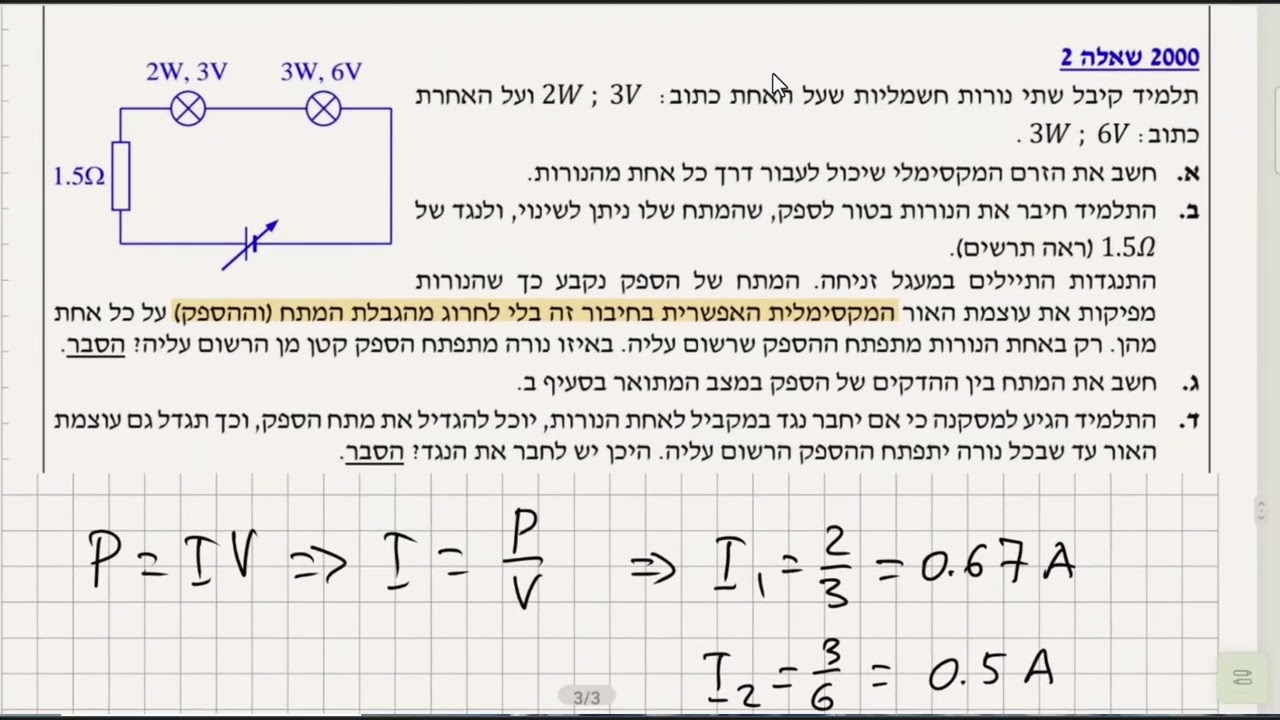 2000 שאלה 2
תלמיד קיבל שתי נורות חשמליות שעל האחת כתוב: 2W ; 3V ועל האחרת
כתוב: 3W ; 6V .
א. חשב את הזרם המקסימלי שיכול לעבור דרך כל אחת מהנורות.
ב. התלמיד חיבר את הנורות בטור לספק, שהמתח שלו ניתן לשינוי, ולנגד של
1.5Ω (ראה תרשים).
התנגדות התיילים במעגל זניחה. המתח של הספק נקבע כך שהנורות
מפיקות את עוצמת האור המקסימלית האפשרית בחיבור זה בלי לחרוג מהגבלת המתח (וההספק) על כל אחת
מהן. רק באחת הנורות מתפתח ההספק שרשום עליה. באיזו נורה מתפתח הספק קטן מן הרשום עליה? הסבר.
ג. חשב את המתח בין ההדקים של הספק במצב המתואר בסעיף ב.
ד. התלמיד הגיע למסקנה כי אם יחבר נגד במקביל לאחת הנורות, יוכל להגדיל את מתח הספק, וכך תגדל גם עוצמת
האור עד שבכל נורה יתפתח ההספק הרשום עליה. היכן יש לחבר את הנגד? הסבר.
2W, 3V 3W, 6V
1.5Ω
P = IV => I = P/V => I₁ = 2/3 = 0.67 A
I₂ = 3/6 = 0.5 A
3/3